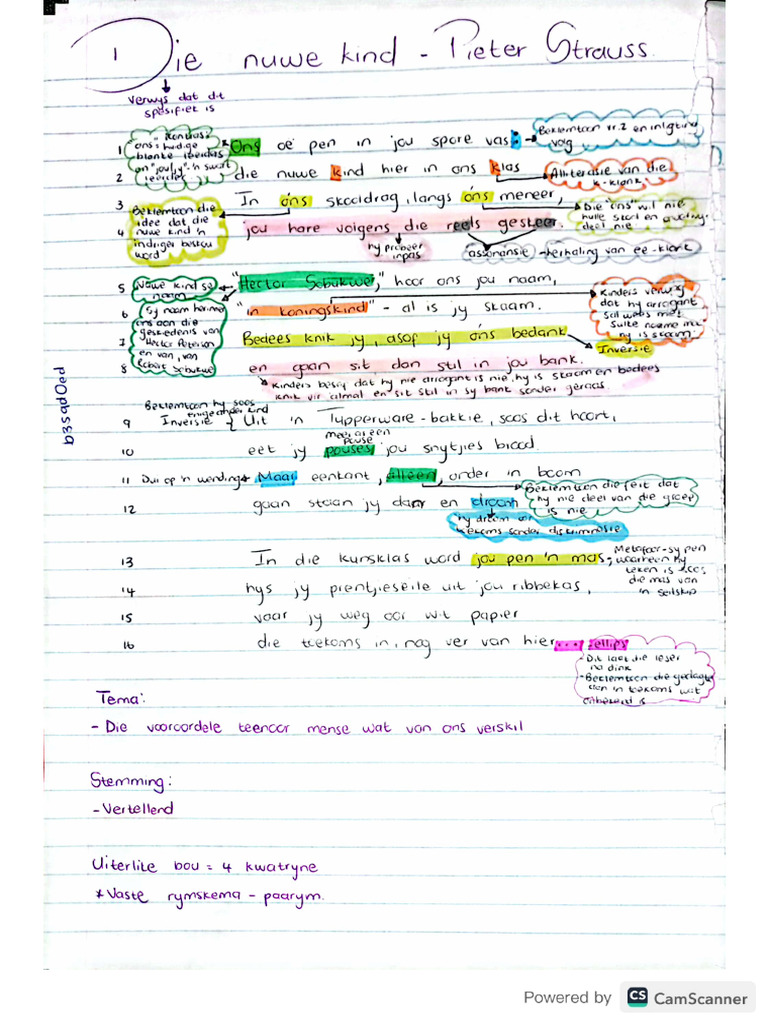 1 Die nuwe kind - Pieter Strauss.
verwys dat dit
spesifiek is
"Kontras:
ons = huidige
blanke leerders
en "jou/jy" = 'n swart
leerder
1 Ons oë pen in jou spore vas:
Beklemtoon vr.2 en inligting
volg
2 die nuwe kind hier in ons klas
Alliterasie van die
k-klank.
3 In óns skooldrag, langs óns meneer,
Beklemtoon die
idee dat die
nuwe kind 'n
indringer beskou
word
Die "ons" wil nie
hulle skool en
deel nie
4 jou hare volgens die reëls geskeer.
hy probeer
inpas
assonansie - herhaling van ee-klank
5 "Hector Sobukwe," hoor ons jou naam,
Nuwe kind se
naam
6 "'n koningskind" - al is jy skaam.
Sy naam herinner
ons aan die
geskiedenis van
Hector Peterson
en van, van
Robert Sobukwe
Kinders verwag
dat hy arrogant
sal wees met
sulke name maar
hy is skaam
7 Bedees knik jy, asof jy óns bedank
Inversie
8 en gaan sit dan stil in jou bank.
Kinders besef dat hy nie arrogant is nie, hy is skaam en bedees
knik vir almal en sit stil in sy bank sonder geraas.
b3sqd0ed
Beklemtoon hy soos
enige ander kind
9 Inversie { Uit 'n Tupperware-bakkie, soos dit hoort,
meer as een
pouse
10 eet jy pouses jou snytjies brood.
11 Dui op 'n wending Maar eenkant, alleen, onder 'n boom
Beklemtoon die feit dat
hy nie deel van die groep
is nie
12 gaan staan jy dan en droom
hy droom van
toekoms sonder diskriminasie
13 In die kunsklas word jou pen 'n mas,
Metafoor - sy pen
waarmee hy
teken is soos
die mas van
'n seilskip
14 hys jy prentjieseile uit jou ribbekas,
15 vaar jy weg oor wit papier
16 die toekoms in, nog ver van hier.... ellips
- Dit laat die leser
na dink
- Beklemtoon die gedagte
aan 'n toekoms wat
onbekend is
Tema:
- Die vooroordele teenoor mense wat van ons verskil
Stemming:
- Vertellend
Uiterlike bou = 4 kwatryne
* Vaste rymskema - paarym.
Powered by CS CamScanner